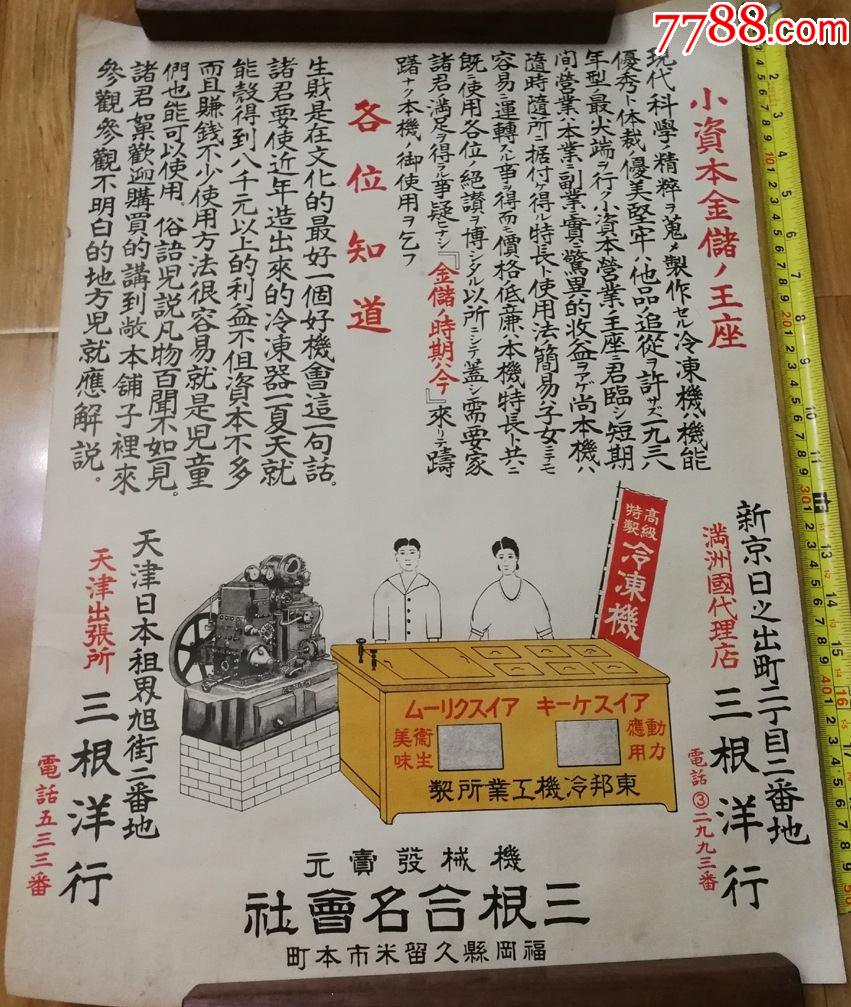 7788.com
小資本金儲ノ王座
現代科學ノ精粹ヲ蒐メ製作セル冷凍機ハ機能
優秀ト体裁ノ優美堅牢ハ他品ノ追從ヲ許サズ一九三八
年型ノ最尖端ヲ行ク小資本營業ノ王座ニ君臨シ短期
間營業ハ本業ニ副業ニ實ニ驚異的收益ヲアゲ尚本機ハ
隨時隨所ニ据付ケ得ル特長ト使用法ノ簡易ハ子女ニテモ
容易ニ運轉スル事ヲ得而モ價格低廉ハ本機特長ト共ニ
既ニ使用各位ノ絕讚ヲ博シタル以所ニシテ蓋シ需要家
諸君ノ満足ヲ得ル事疑ヒナシ『金儲ノ時期ハ今』來リテ躊
躇ナク本機ノ御使用ヲ乞フ
各位知道
生財是在文化的最好一個好機會這一句話。
諸君要使近年造出來的冷凍器一夏天就
能彀得到八千元以上的利益不但資本不多
而且賺錢不少使用方法很容易就是児童
們也能可以使用 俗語児説凡物百聞不如一見。
諸君若歡迎購買的講到敝本舖子裡來
參觀參觀不明白的地方児就應解説。
新京日之出町二丁目二番地
満洲國代理店 三根洋行
電話③二九九三番
高級特製 冷凍機
アイスケーキ アイスクリーム
動力應用
衛生美味
東邦冷機工業所製
天津日本租界旭街二番地
天津出張所 三根洋行
電話五三三番
機械發賣元
三根合名會社
福岡縣久留米市本町